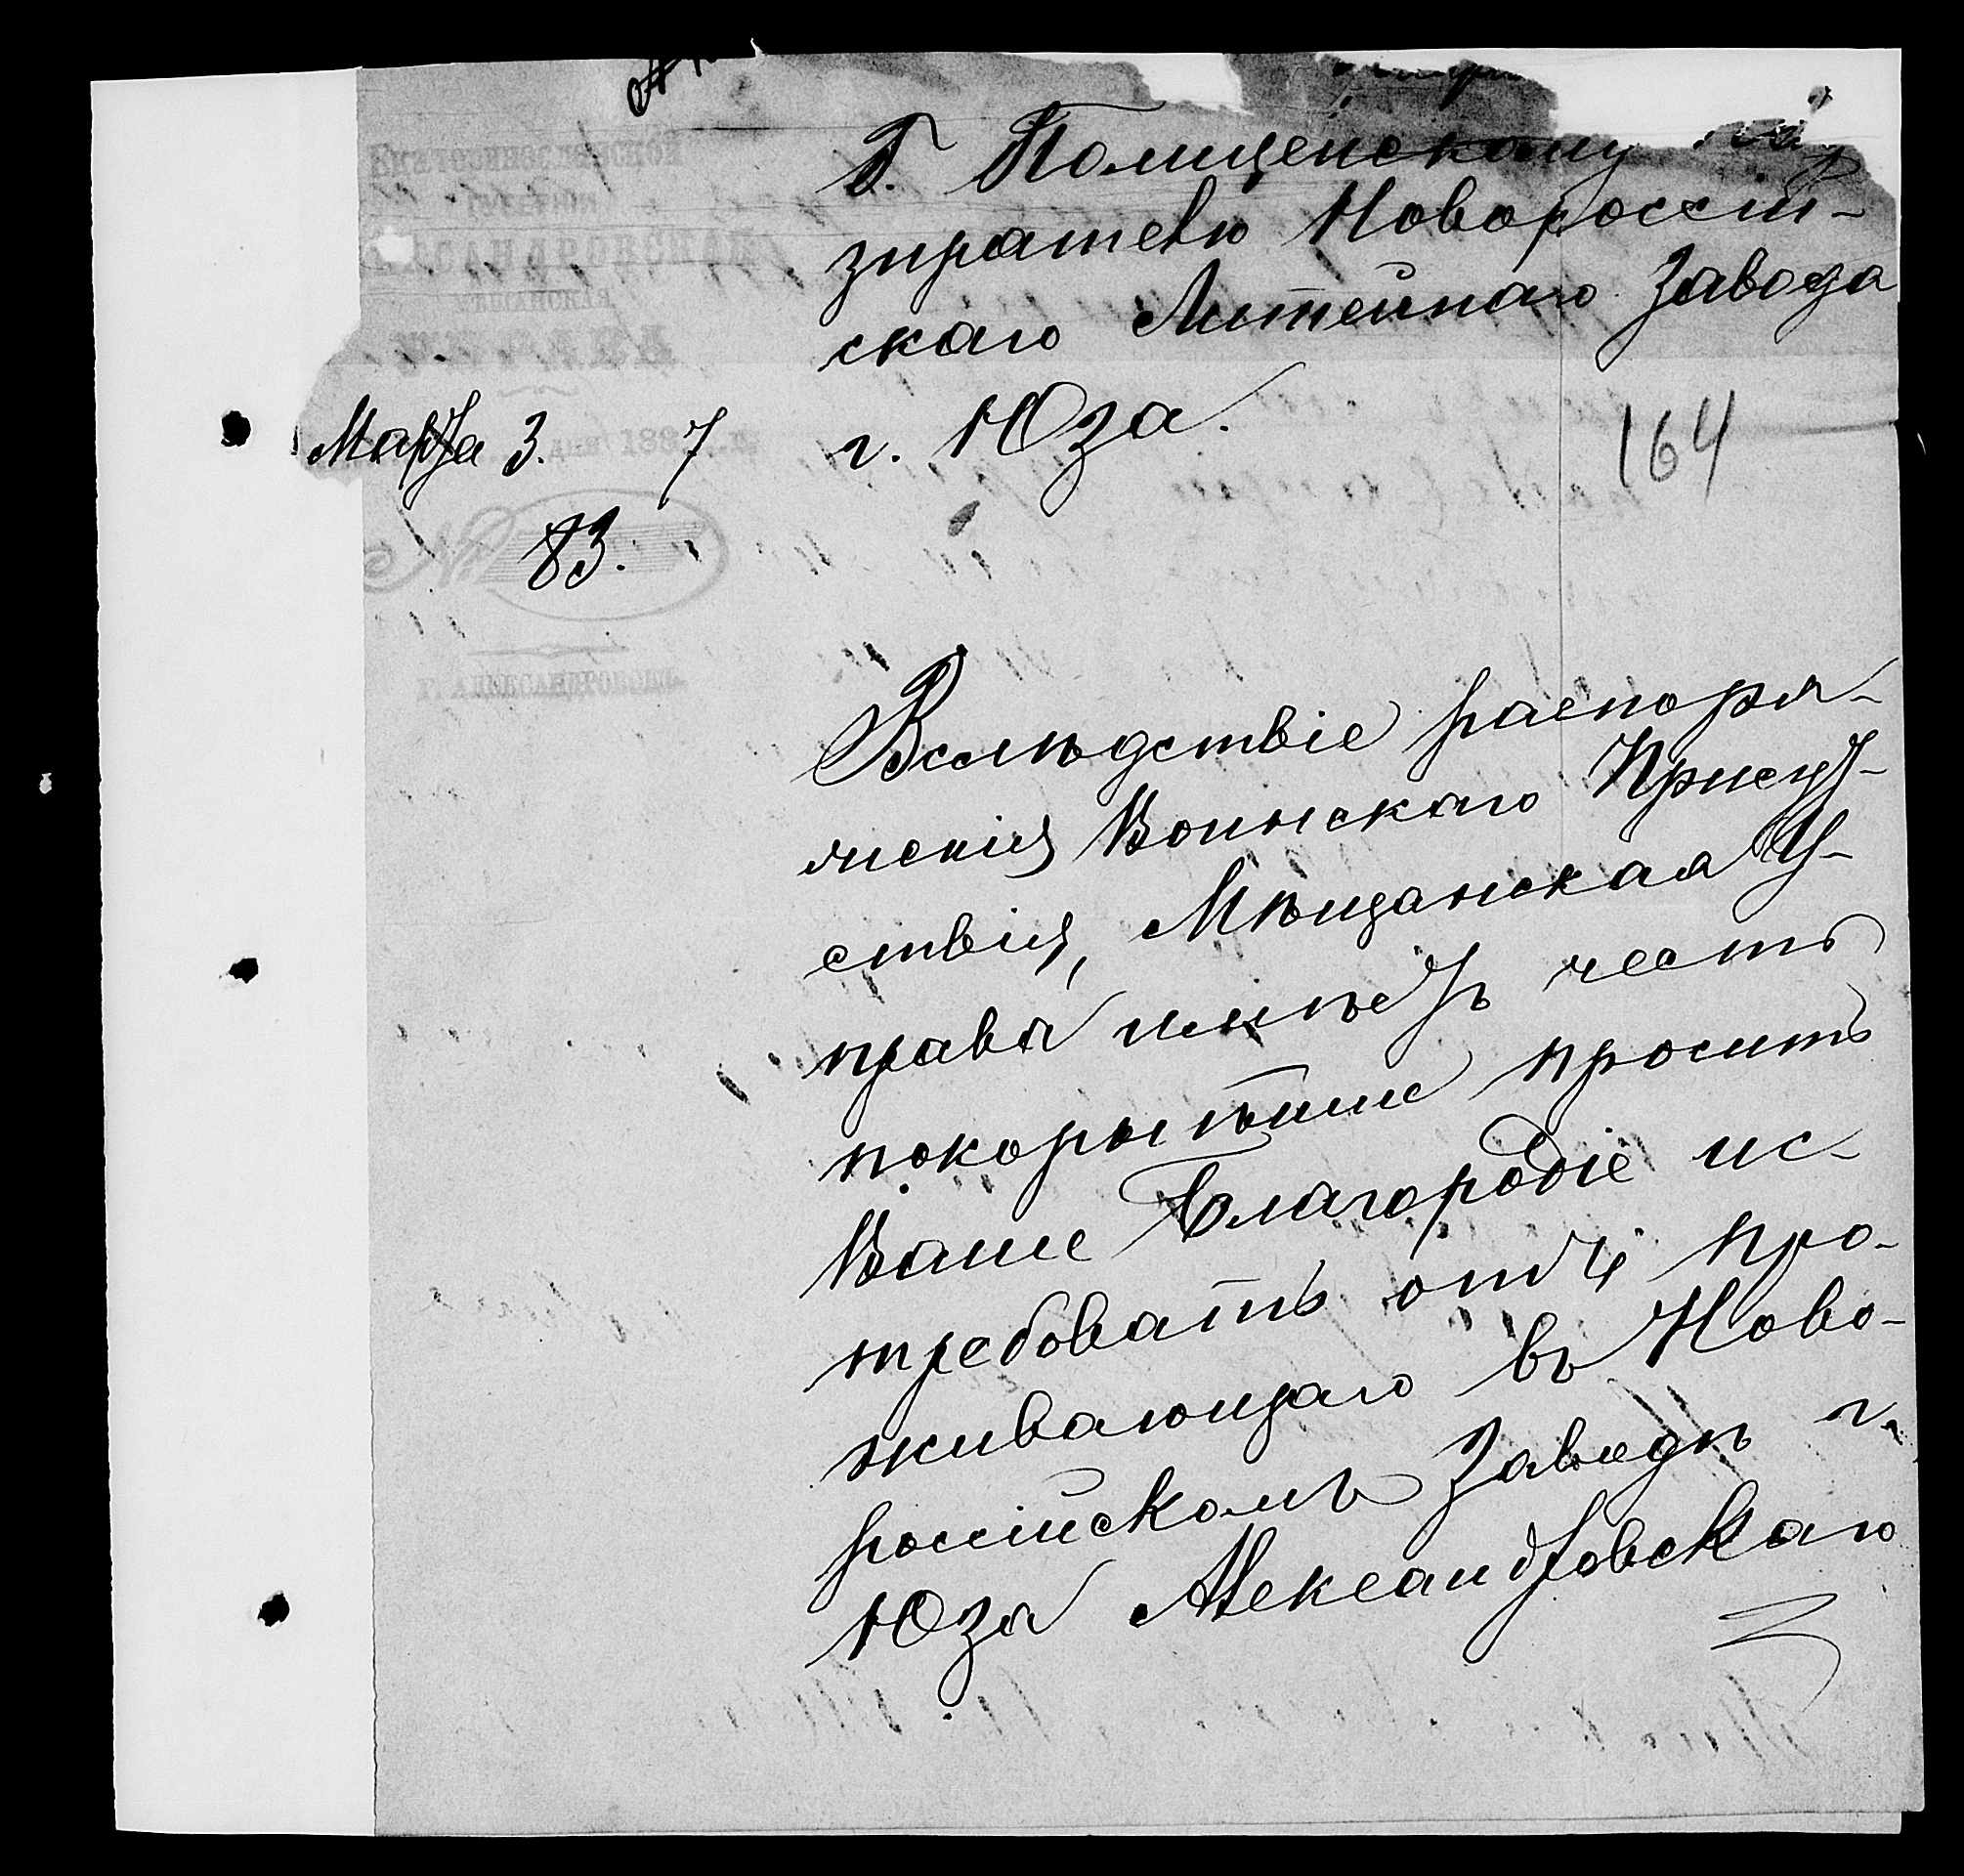 Екатеринославской
губернии
АЛЕКСАНДРОВСКАЯ
МѢЩАНСКАЯ
УПРАВА
Марта 3. дня 1887 г.
№ 83.
Г. АЛЕКСАНДРОВСКЪ.
Г. Полицейскому
зирателю Новороссій-
скаго Литейнаго Завода
г. Юза.
164
Вслѣдствіе распоря-
женія Воинскаго Присут-
ствія, Мѣщанская У-
права имѣетъ честь
покорнѣйше просить
Ваше Благородіе ис-
требовать отъ про-
живающаго въ Ново-
россійскомъ Заводѣ г.
Юза Александровскаго